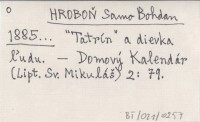 HROBOŇ Samo Bohdan
1885... "Tatrín" a dievka
ľudu. — Domový Kalendár
(Lipt. Sv. Mikuláš) 2: 79.